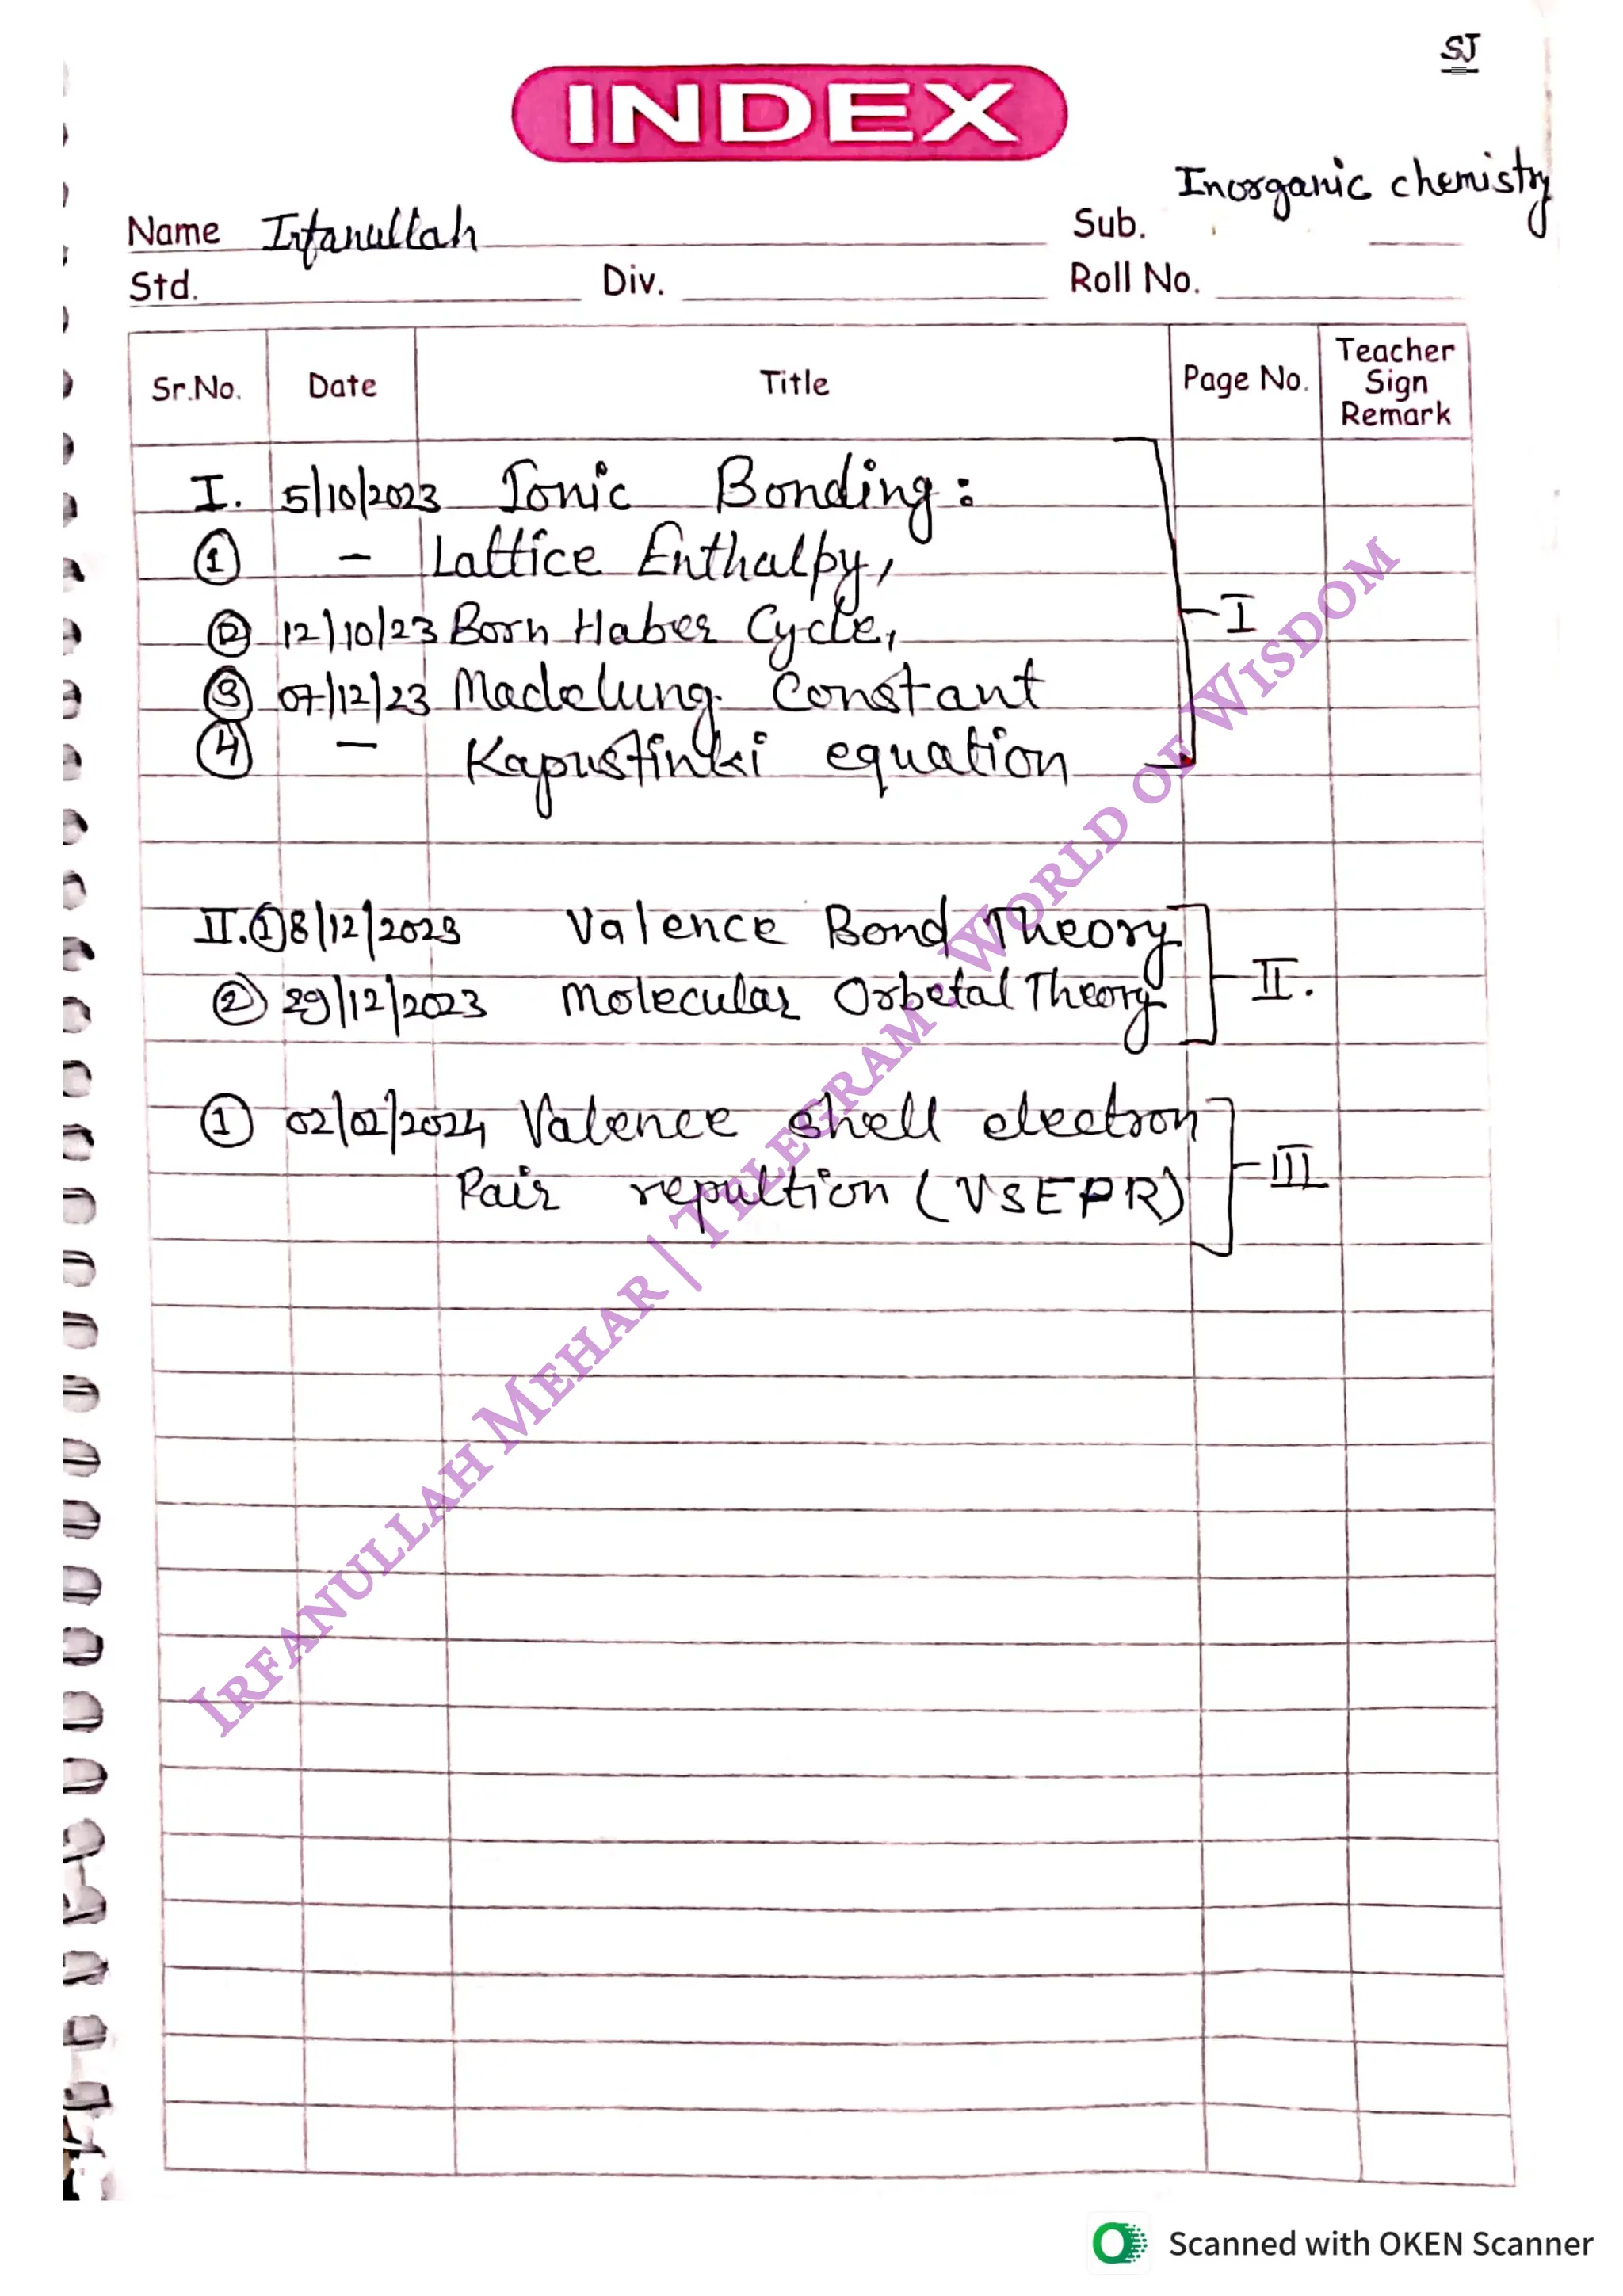 SJ
INDEX
Inorganic chemistry
Name Irfanullah Sub.
Std. Div. Roll No.
Sr.No. Date Title Page No. Teacher Sign Remark
I. 5/10/2023 Ionic Bonding:
① - Lattice Enthalpy,
② 12/10/23 Born Haber Cycle,
I
③ 07/12/23 Madelung Constant
④ - Kapustinki equation
II. ① 8/12/2023 Valence Bond Theory
② 29/12/2023 Molecular Orbetal Theory
II.
① 02/02/2024 Valence shell electron
Pair repultion (VSEPR)
III
IRFANULLAH MEHAR | TELEGRAM - WORLD OF WISDOM
Scanned with OKEN Scanner